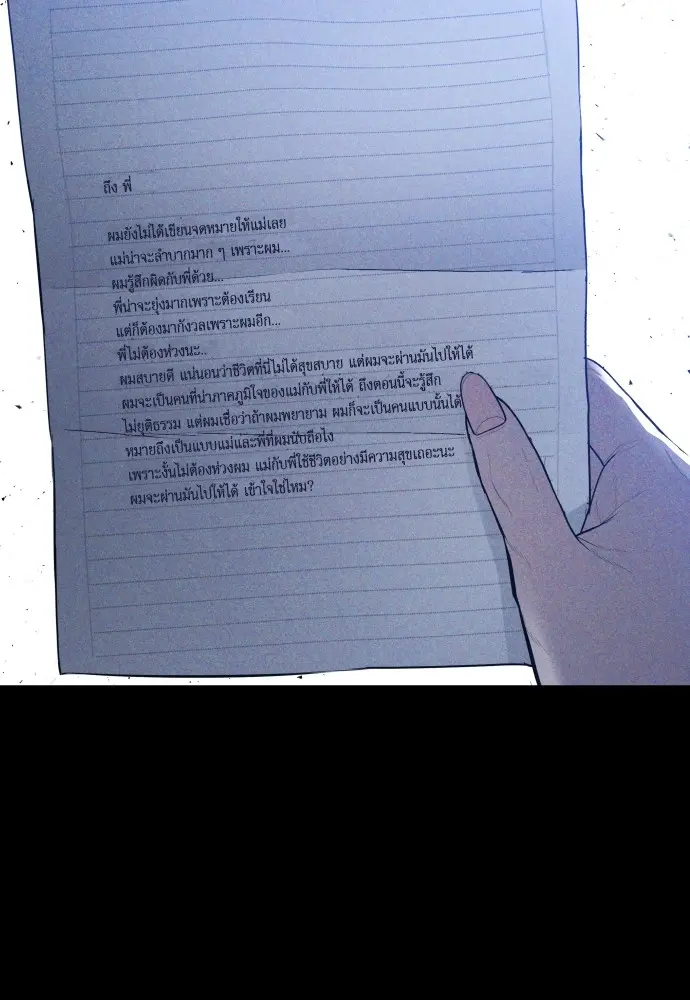 ถึง พี่
ผมยังไม่ได้เขียนจดหมายให้แม่เลย
แม่น่าจะลำบากมาก ๆ เพราะผม...
ผมรู้สึกผิดกับพี่ด้วย...
พี่น่าจะยุ่งมากเพราะต้องเรียน
แต่ก็ต้องมากังวลเพราะผมอีก...
พี่ไม่ต้องห่วงนะ..
ผมสบายดี แน่นอนว่าชีวิตที่นี่ไม่ได้สุขสบาย แต่ผมจะผ่านมันไปให้ได้
ผมจะเป็นคนที่น่าภาคภูมิใจของแม่กับพี่ให้ได้ ถึงตอนนี้จะรู้สึก
ไม่ยุติธรรม แต่ผมเชื่อว่าถ้าผมพยายาม ผมก็จะเป็นคนแบบนั้นได้
หมายถึงเป็นแบบแม่และพี่ที่ผมนับถือไง
เพราะงั้นไม่ต้องห่วงผม แม่กับพี่ใช้ชีวิตอย่างมีความสุขเถอะนะ
ผมจะผ่านมันไปให้ได้ เข้าใจใช่ไหม?